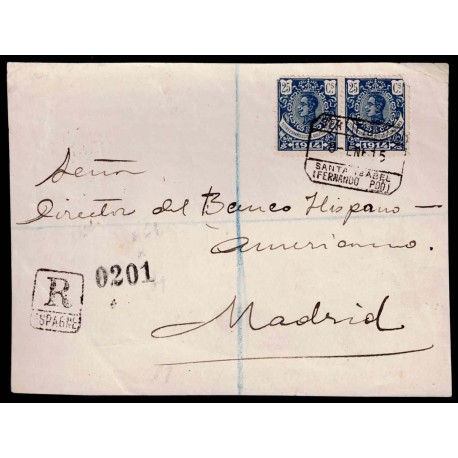 25 Cs 25 Cs
1914 1914
ENE 15
SANTA ISABEL
(FERNANDO POO)
Señor
Director del Banco Hispano-
Americano.
R
ESPAGNE
0201
Madrid